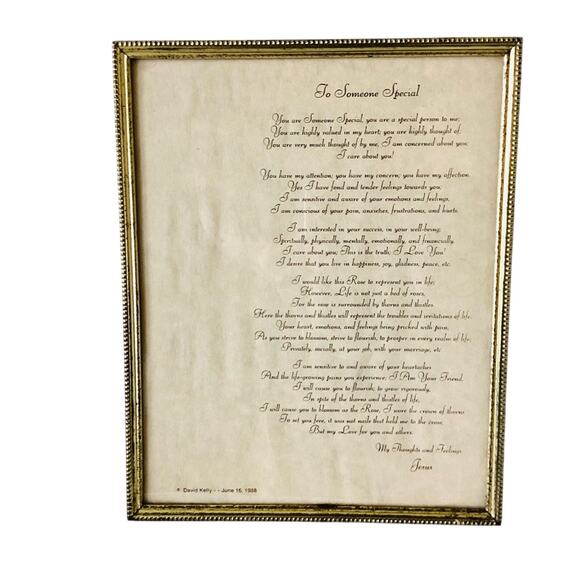 To Someone Special
You are Someone Special, you are a special person to me;
You are highly valued in my heart; you are highly thought of;
You are very much thought of by me, I am concerned about you;
I care about you!
You have my attention; you have my concern; you have my affection.
Yes I have fond and tender feelings towards you,
I am sensitive and aware of your emotions and feelings,
I am conscious of your pain, anxieties, frustrations, and hurts.
I am interested in your success, in your well-being;
Spiritually, physically, mentally, emotionally, and financially.
I care about you; This is the truth; I Love You!
I desire that you live in happiness, joy, gladness, peace, etc.
I would like this Rose to represent you in life;
However, Life is not just a bed of roses,
For the rose is surrounded by thorns and thistles.
Here the thorns and thistles will represent the troubles and irritations of life.
Your heart, emotions, and feelings being pricked with pain,
As you strive to blossom, strive to flourish, to prosper in every realm of life;
Privately, socially, at your job, with your marriage, etc
I am sensitive to and aware of your heartaches
And the life-growing pains you experience; I Am Your Friend.
I will cause you to flourish; to grow vigorously,
In spite of the thorns and thistles of life,
I will cause you to blossom as the Rose, I wore the crown of thorns
To set you free, it was not nails that held me to the cross;
But my Love for you and others.
My Thoughts and Feelings
Jesus
© David Kelly - - June 16, 1988